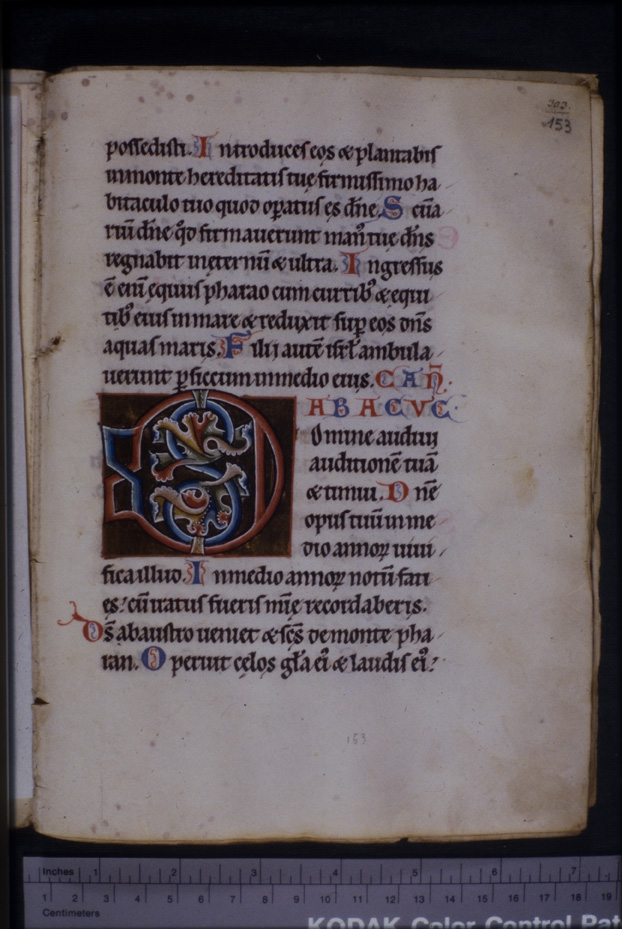 202
153
possedisti. Introduces eos & plantabis
in monte hereditatis tuę firmissimo ha
bitaculo tuo quod opatus es dn̄e. S c̄ua
riū dn̄e q̊d firmauerunt man᷒ tuę dn̄s
regnabit in eternū & ultra. Ingressus
ē eni᷒ ęquus pharao cum currib᷒ & equi
tib᷒ eius in mare & reduxit sup eos dn̄s
aquas maris. Filij autē isrł ambula
uerunt p siccum in medio eius. CAN̄.
ABACVC.
Domine audiui
auditionē tuā
& timui. Dn̄e
opus tuū in me
dio annoꝝ uiui
fica illud. In medio annoꝝ notū faci
es: cū iratus fueris mīe recordaberis.
Ds̄ ab austro ueniet & sc̄s de monte pha
ran. Operuit cęlos gła ei᷒ & laudis ei᷒:
153
Inches 1 2 3 4 5 6 7
1 2 3 4 5 6 7 8 9 10 11 12 13 14 15 16 17 18 19
Centimeters
KODAK Color Control Pat